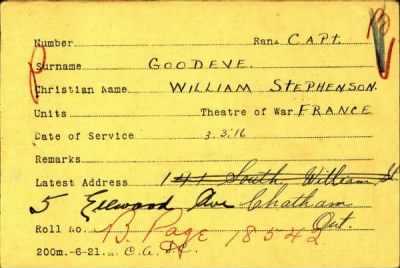 Number Rank CAPT.
Surname GOODEVE.
Christian Name WILLIAM STEPHENSON.
Units Theatre of War FRANCE
Date of Service 3.3.16
Remarks
Latest Address 141 South William St
5 Ellwood Ave Chatham
Ont.
Roll No. B. Page 18542
200m.-6-21.